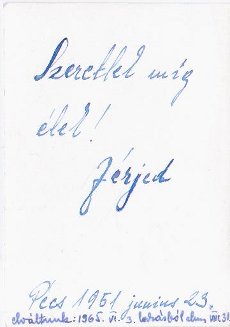 Szeretlek míg
élek!
Férjed
Pécs 1951 junius 23.
elváltunk: 1965. VI. 3. lakásból elm. VIII.31.